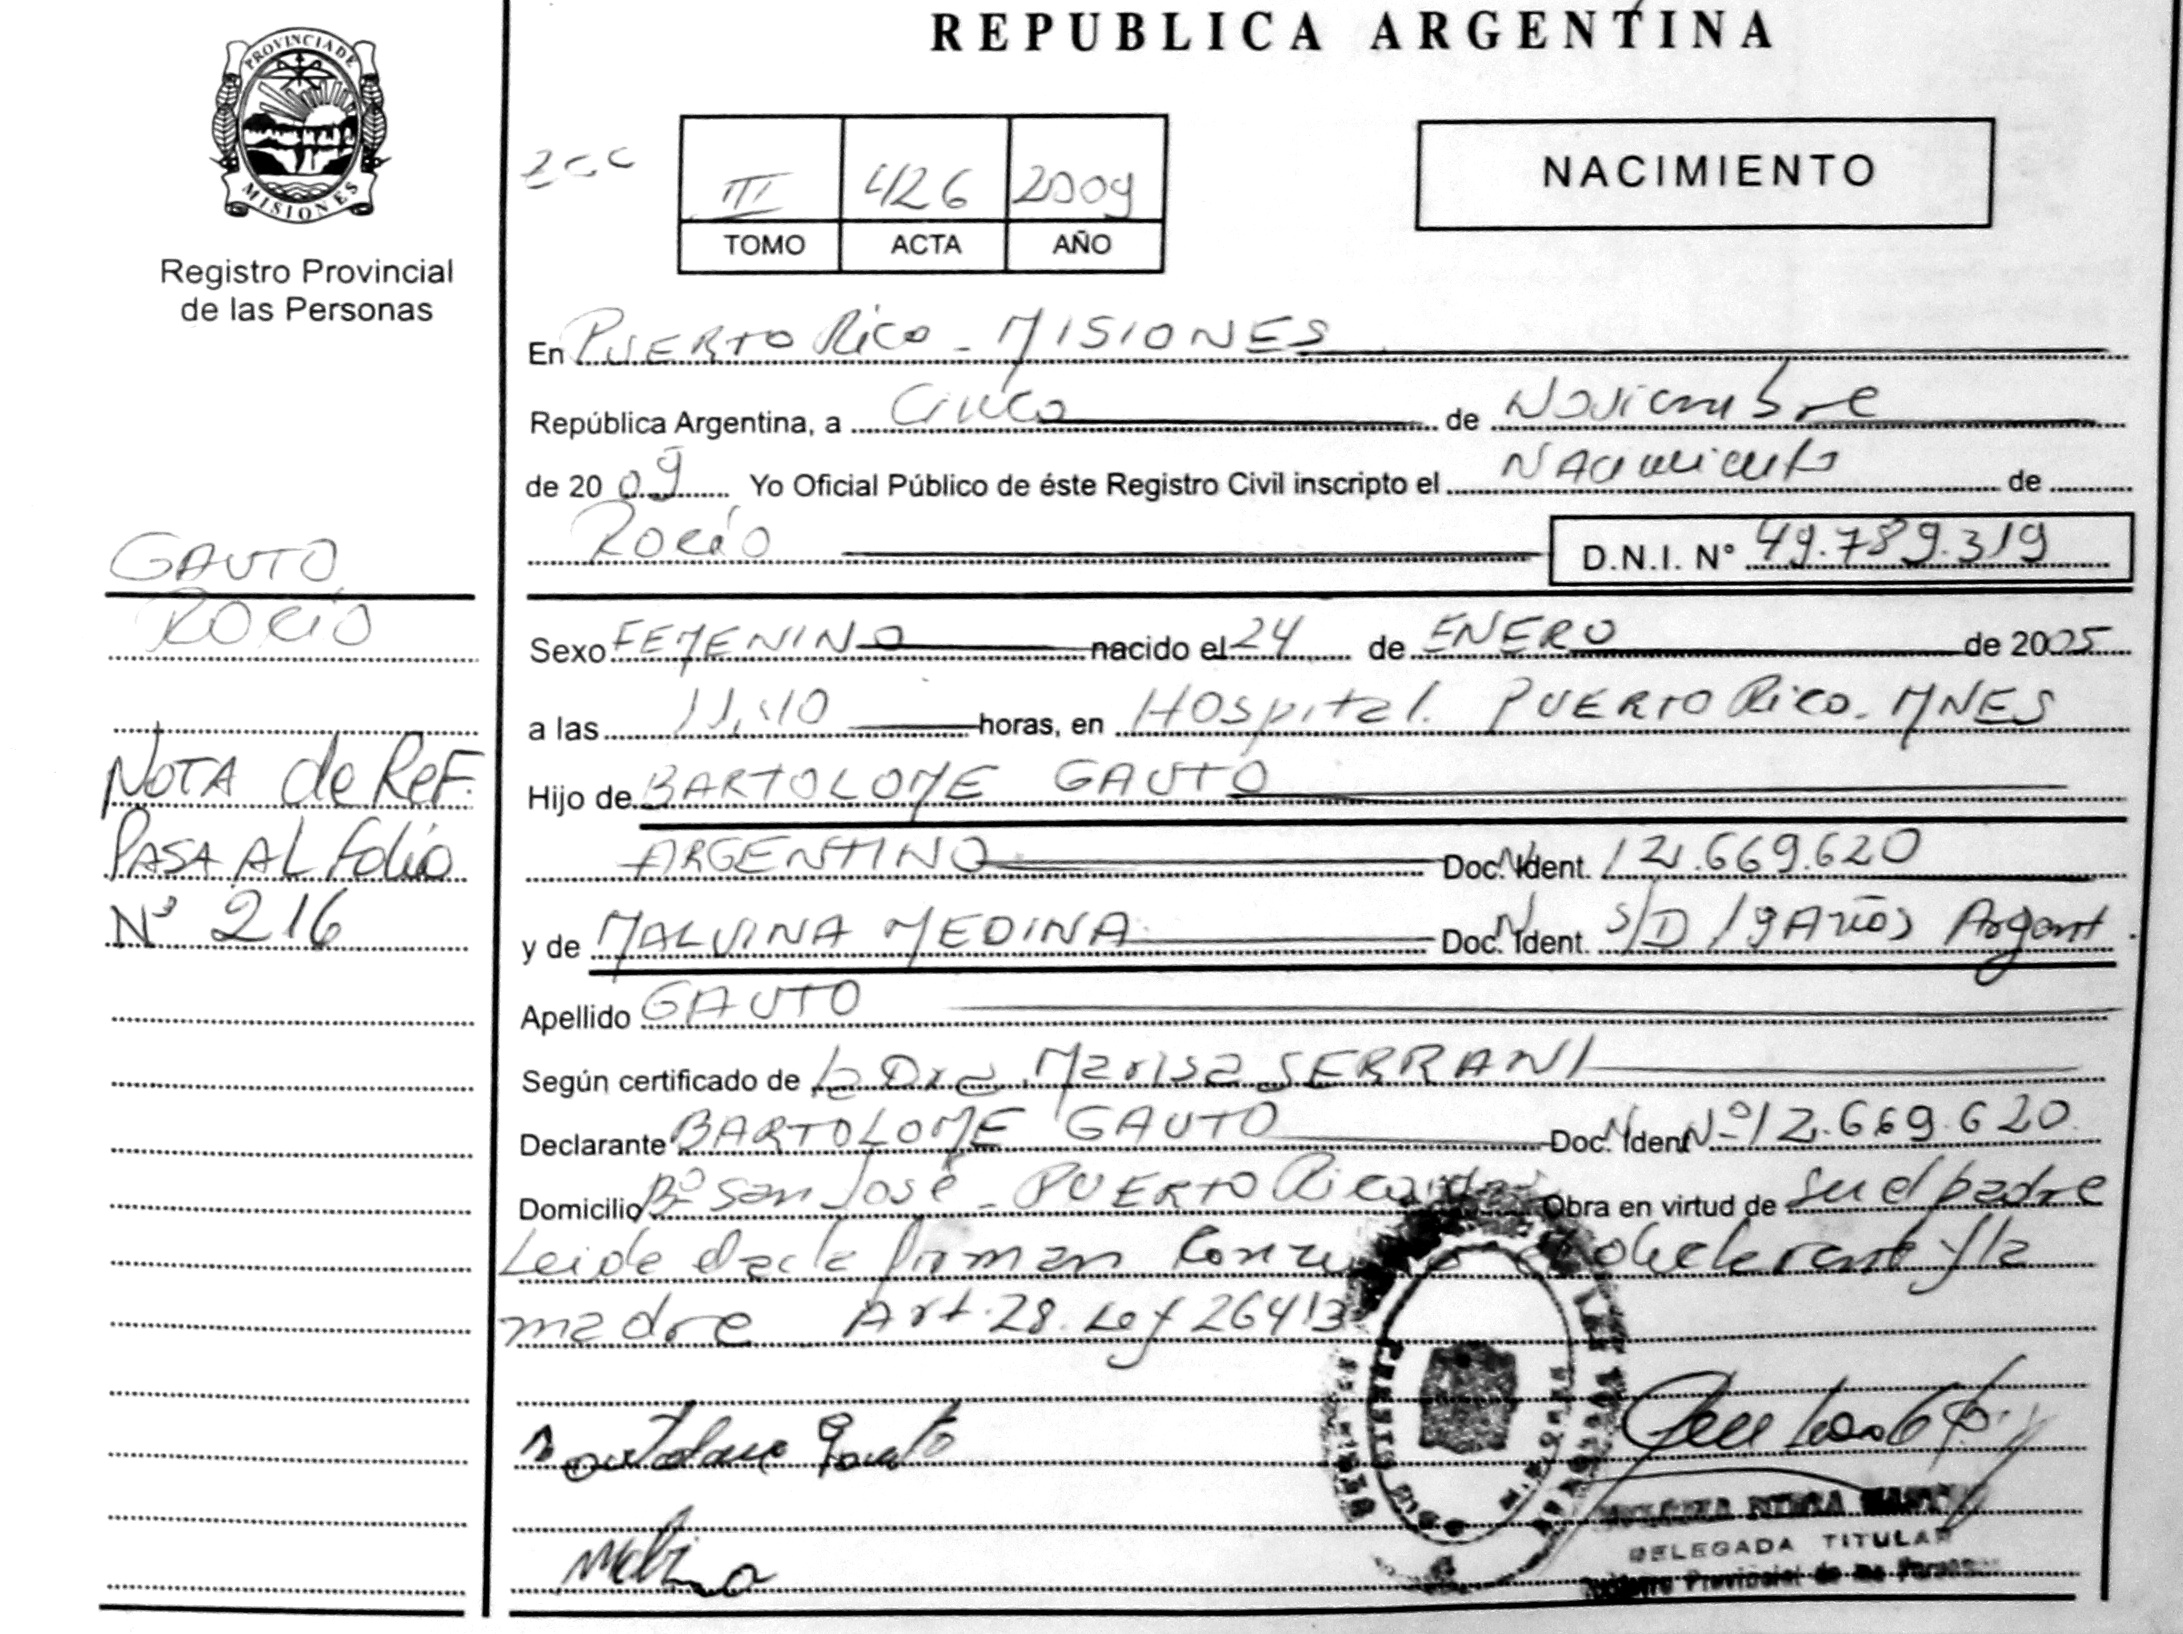 REPUBLICA ARGENTINA
PROVINCIA DE
MISIONES
Registro Provincial
de las Personas
III 426 2009
TOMO ACTA AÑO
NACIMIENTO
En PUERTO Rico - MISIONES
República Argentina, a Cinco de Noviembre
de 2009 Yo Oficial Público de éste Registro Civil inscripto el Nacimiento de
Rocío D.N.I. N° 49.789.319
GAUTO
ROCÍO
Sexo FEMENINO nacido el 24 de ENERO de 2005
a las 11,40 horas, en Hospital. PUERTO Rico - MNES
NOTA de ReF.
PASA AL Folio
N° 216
Hijo de BARTOLOME GAUTO
ARGENTINO Doc. Ident. 12.669.620
y de MALVINA MEDINA Doc. Ident. S/D 19 Años Argent.
Apellido GAUTO
Según certificado de la Dra Marisa SERRANI
Declarante BARTOLOME GAUTO Doc. Ident N° 12.669.620
Domicilio B° San José - PUERTO Rico Obra en virtud de ser el padre
Leida el acta firman el declarante y la
madre Art. 28. Ley 26413
Gauto
DELEGADA TITULAR
Registro Provincial de las Personas